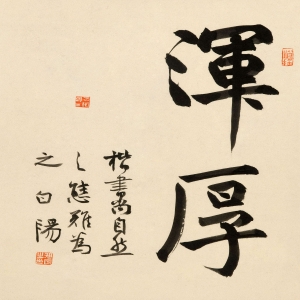 渾厚
楷書尚自然
之態雅為
之白陽